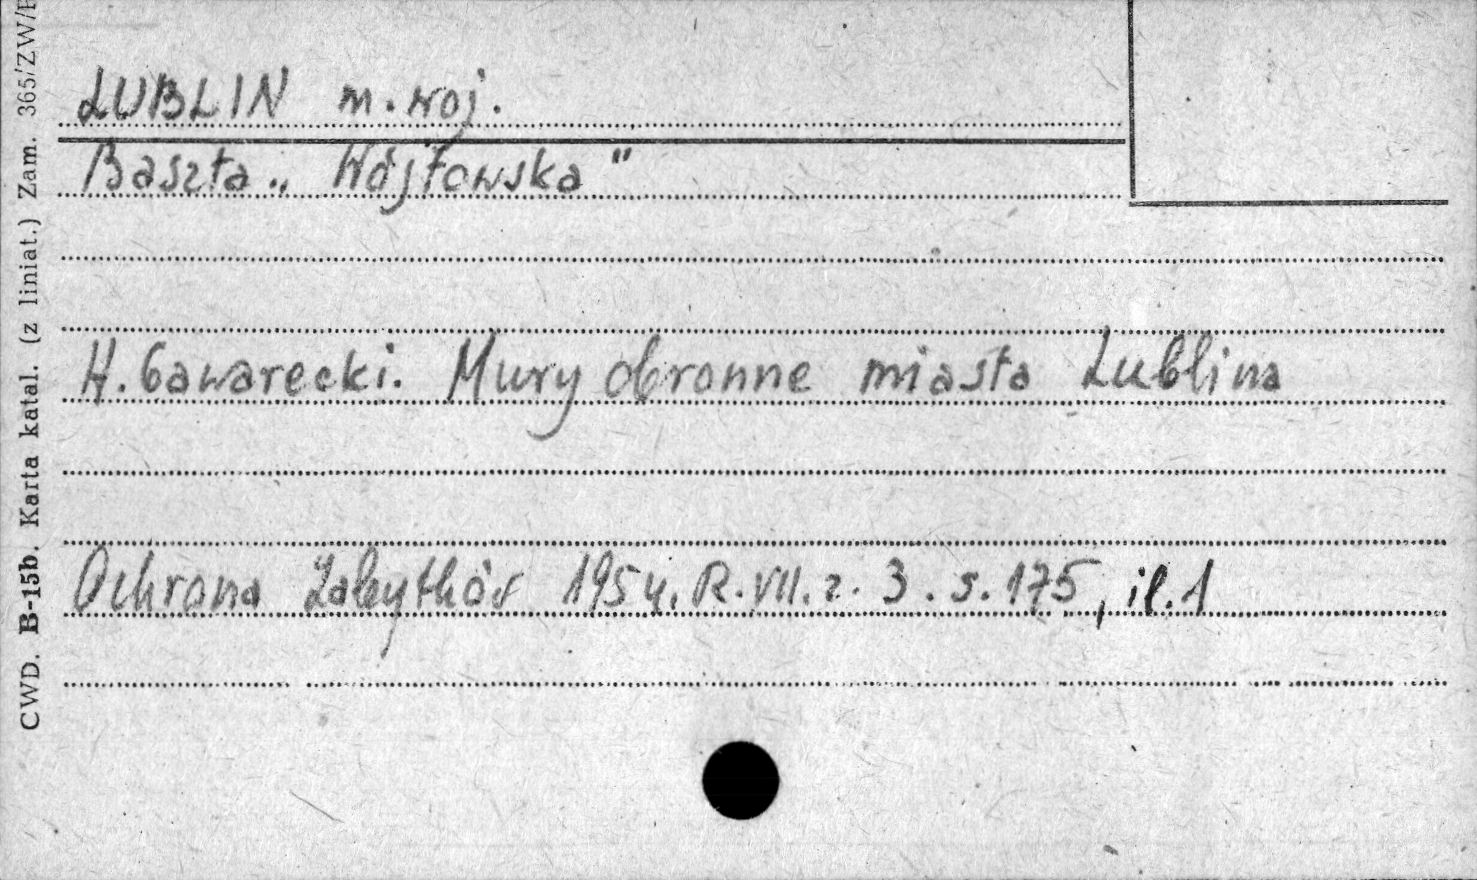 LUBLIN m. woj.
Baszta „Wójtowska"
H. Gawarecki. Mury obronne miasta Lublina
Ochrona Zabytków 1954. R. VII. z. 3. s. 175, il. 1
CWD. B-15b. Karta katal. (z liniat.) Zam. 365/ZW/